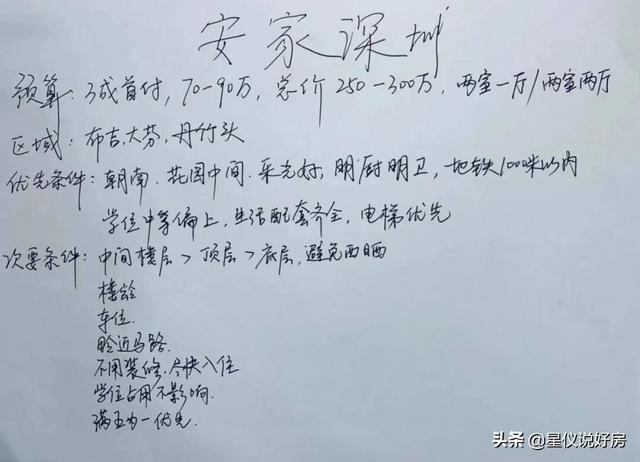 安家深圳
预算：3成首付，70-90万，总价250-300万，两室一厅/两室两厅
区域：布吉，大芬，丹竹头
优先条件：朝南．花园中间．采光好，明厨明卫，地铁1000米以内
学位中等偏上，生活配套齐全，电梯优先
次要条件：中间楼层>顶层>底层，避免西晒
楼龄
车位．
临近马路．
不用装修，尽快入住
学位占用不影响．
满五为一优先．
头条 @星仪说好房